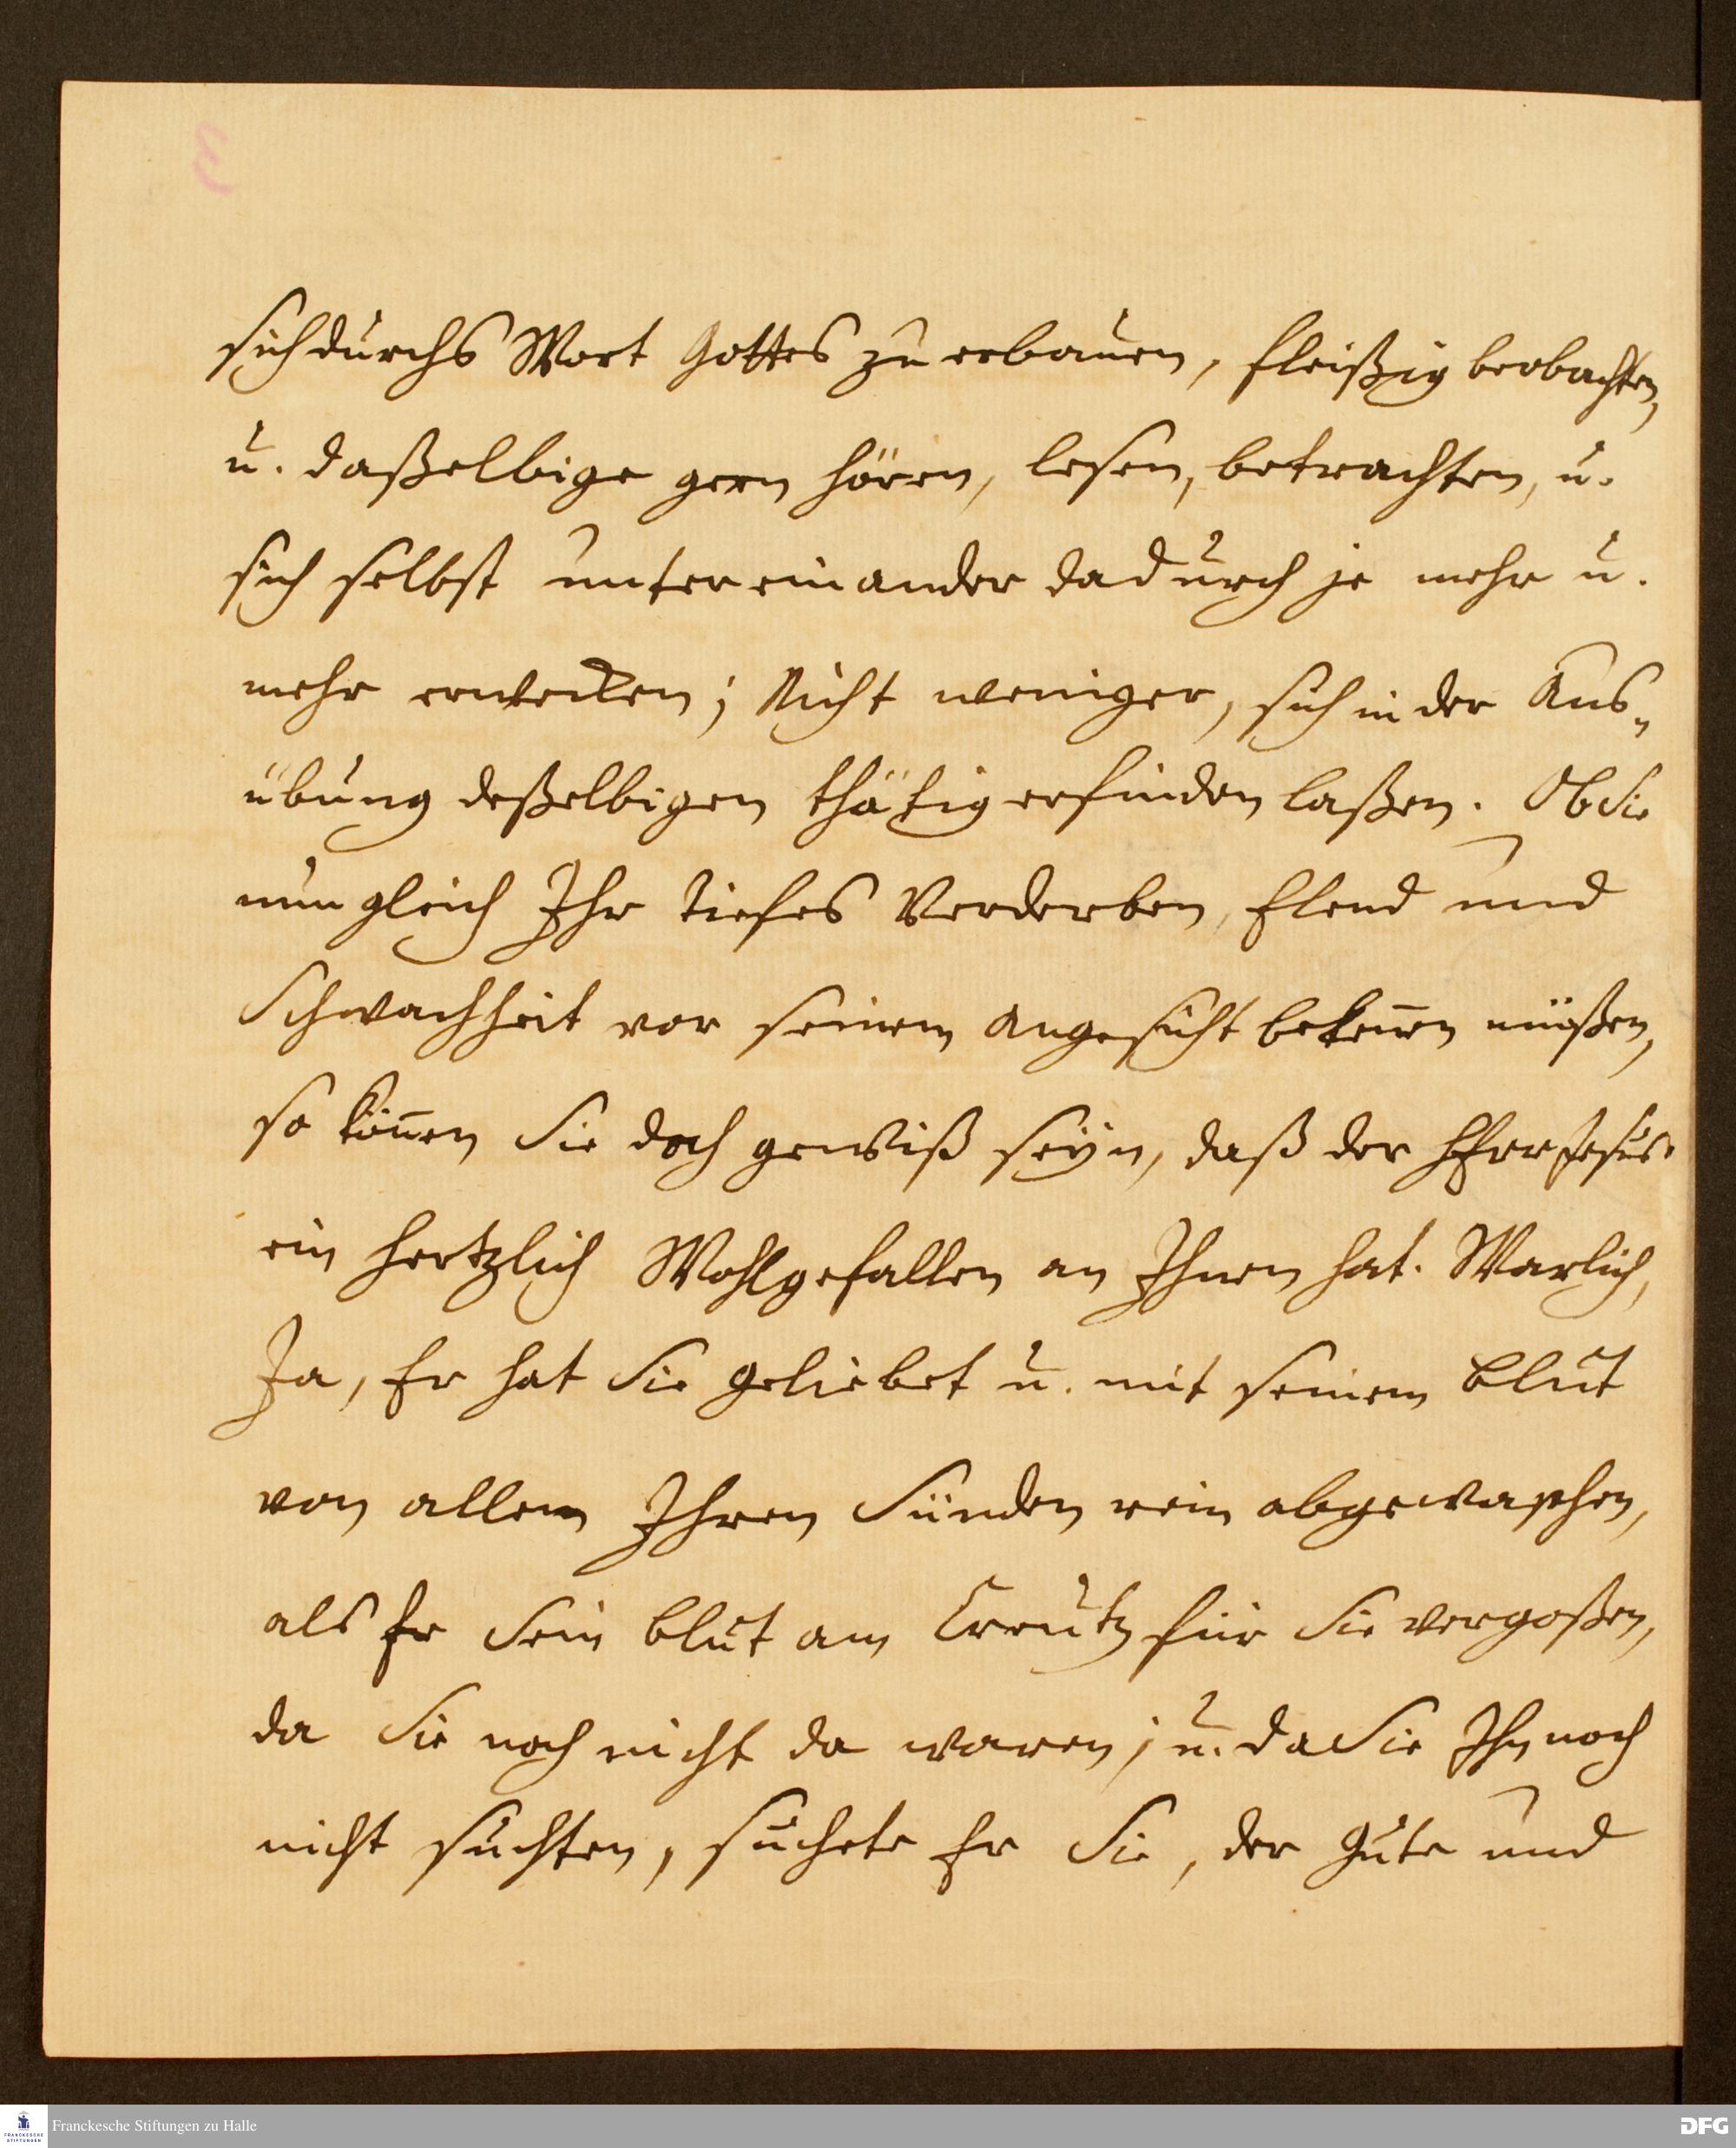 3
sich durchs Wort Gottes zu erbauen, fleißig beobachten,
u. daßelbige gern hören, lesen, betrachten, u.
sich selbst untereinander dadurch je mehr u.
mehr erwecken; Nicht weniger, sich in der Aus-
übung deßelbigen thätig erfinden laßen. Ob Sie
nun gleich Ihr tiefes Verderben, Elend und
Schwachheit vor seinem Angesicht bekeñen müßen,
so köñen Sie doch gewiß seyn, daß der HErr Jesus
ein hertzlich Wohlgefallen an Ihnen hat. Warlich,
Ja, Er hat Sie geliebet u. mit seinem Blut
von allen Ihren Sünden rein abgewaschen,
als Er Sein Blut am Creutz für Sie vergoßen,
da Sie noch nicht da waren; u. da Sie Ihn noch
nicht suchten, suchete Er Sie, der Gute und
FRANCKESCHE
STIFTUNGEN
Franckesche Stiftungen zu Halle
DFG